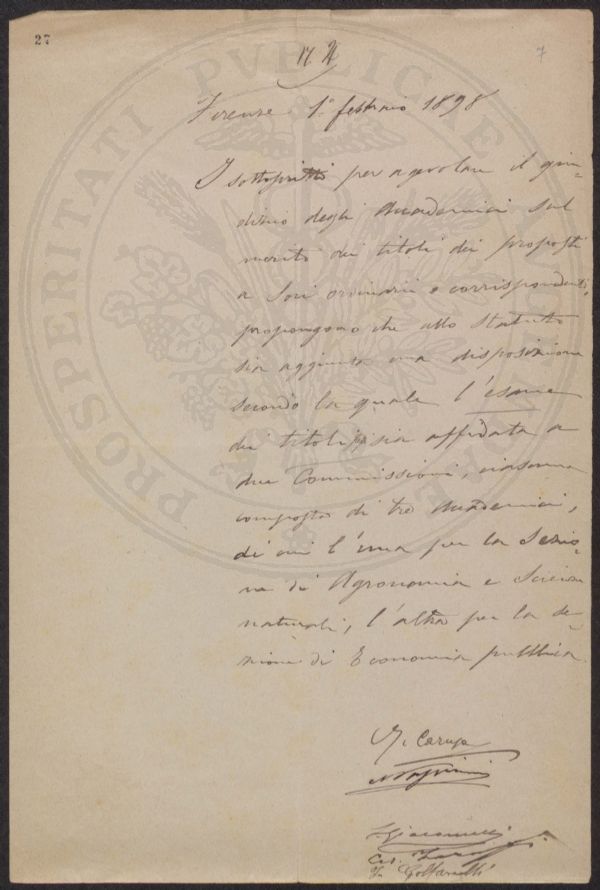 27
7
PROSPERITATI PVBLICAE
Firenze 1° febbraio 1898
I sottoscritti per agevolare il giu-
dizio degli Accademici sul
merito dei titoli dei proposti
a Soci ordinarii e corrispondenti,
propongono che allo Statuto
sia aggiunta una disposizione
secondo la quale l'esame
dei titoli sia affidata a
due Commissioni, ciascuna
composta di tre Accademici,
di cui l'una per la Sezio-
ne di Agronomia e Scienze
naturali, l'altra per la Se-
zione di Economia pubblica.
Caruso